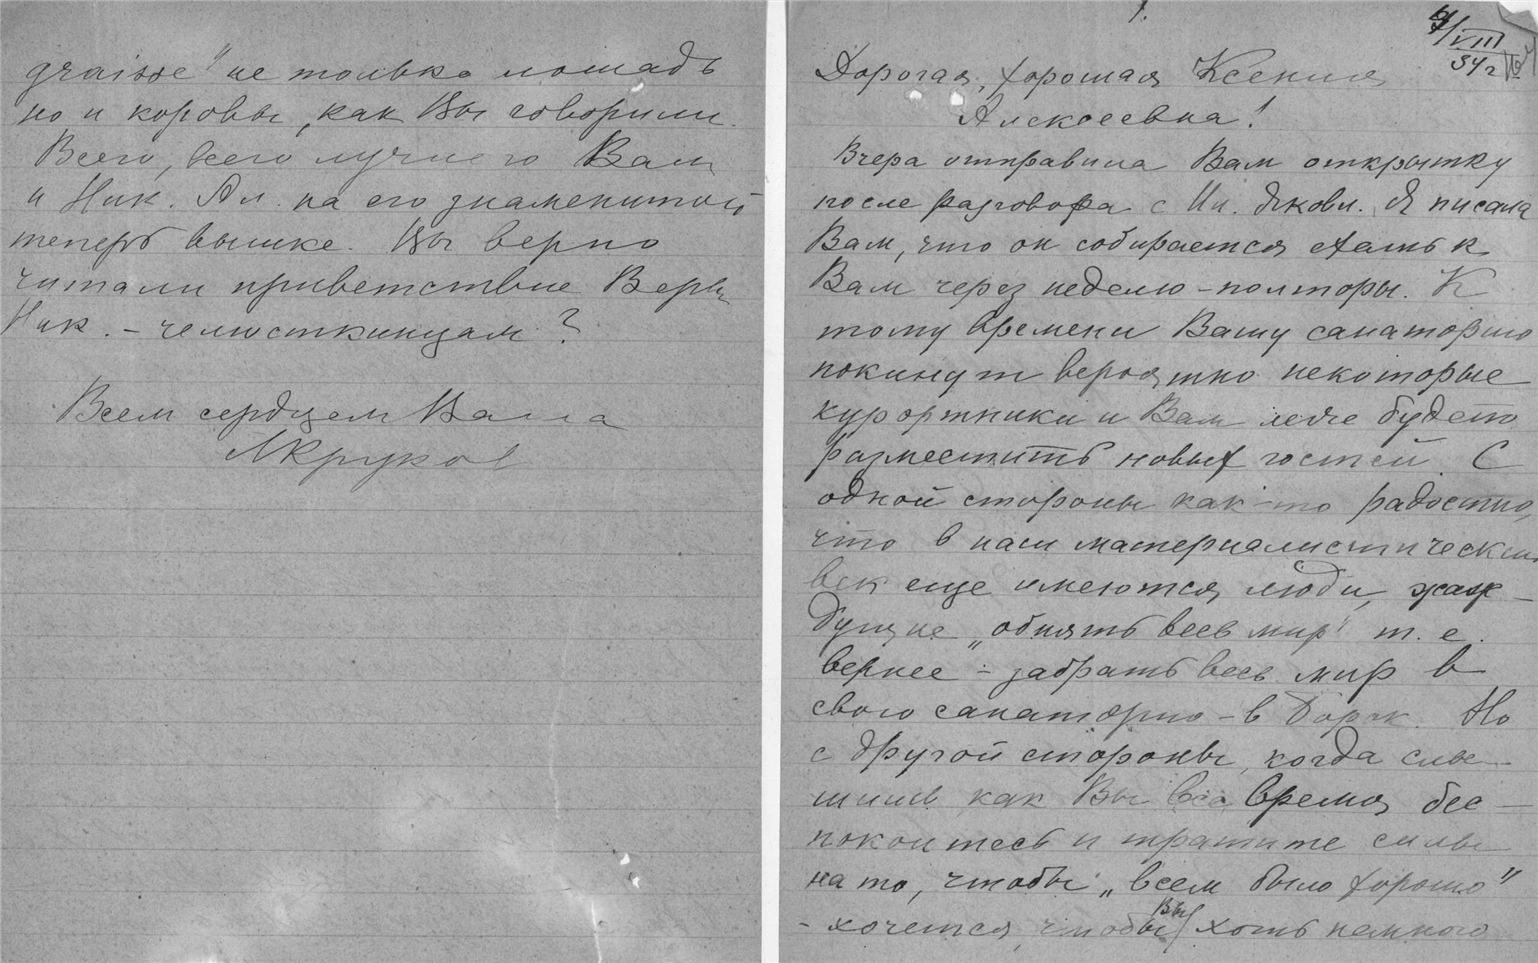 graisse" не только лошадь
но и коровы, как Вы говорили.
Всего, всего лучшего Вам
и Ник. Ал. на его знаменитой
теперь вышке. Вы верно
читали приветствие Веры
Ник. - челюскинцам?
Всем сердцем Ваша
1.
VIII
34 г
Дорогая, хорошая Ксения
Алексеевна!
Вчера отправила Вам открытку
после разговора с Ин. Яковл. Я писала
Вам, что он собирается ехать к
Вам через неделю-полторы. К
тому времени Вашу санаторию
покинут вероятно некоторые
курортники и Вам легче будет
разместить новых гостей. С
одной стороны как-то радостно,
что в наш материалистический
век еще имеются люди, жаж-
дущие „обнять весь мир" т.е.
вернее - забрать весь мир в
свою санаторию - в Борок. Но
с другой стороны, когда слы-
шишь как Вы все время бес-
покоитесь и тратите силы
на то, чтобы „всем было хорошо"
- хочется, чтобы Вы хоть немного